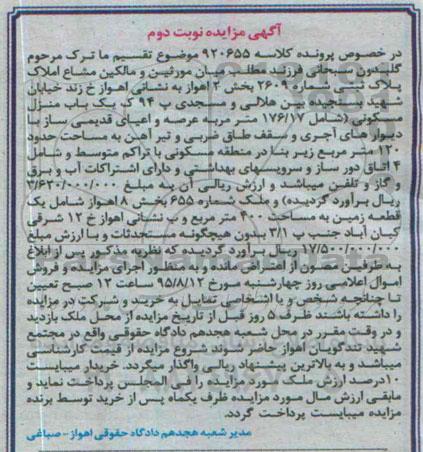 آگهی مزایده نوبت دوم
در خصوص پرونده کلاسه ۹۲۰۶۵۵ موضوع تقسیم ما ترک مرحوم
سبحانی فرزند مطلب میان مورثین و مالکین مشاع املاک
پلاک ثبتی شماره ۲۶۰۹ بخش ۲ اهواز به نشانی اهواز خ زند خیابان
شهید سنجیده بین هلالی و مسجدی پ ۹۴ ک یک باب منزل
مسکونی (شامل ۱۷۶/۱۷ متر مربع عرصه و اعیان قدیمی ساز با
دیوار های آجری و سقف طاق ضربی و تیر آهن به مساحت حدود
۱۲۰ متر مربع زیر بنا در منطقه مسکونی با تراکم متوسط و شامل
۴ اتاق دور ساز و سرویسهای بهداشتی و دارای اشتراکات آب و برق
و گاز و تلفن میباشد و ارزش ریالی آن به مبلغ ۲/۶۳۰/۰۰۰/۰۰۰
ریال برآورد گردیده) و ملک شماره ۶۵۵ بخش ۸ اهواز شامل یک
قطعه زمین به مساحت ۴۰۰ متر مربع و به نشانی اهواز خ ۱۲ شرقی
کیان آباد جنب پ ۳/۱ بدون هیچگونه مستحدثات و با ارزش مبلغ
۱۷/۵۰۰/۰۰۰/۰۰۰ ریال برآورد گردیده که نظریه مذکور پس از ابلاغ
به طرفین مصون از اعتراض مانده و به منظور اجرای مزایده و فروش
اموال اعلامی روز چهارشنبه مورخ ۹۵/۸/۱۲ ساعت ۱۲ صبح تعیین
تا چنانچه شخص و یا اشخاصی تمایل به خرید و شرکت در مزایده
را داشته باشند ظرف ۵ روز قبل از تاریخ مزایده از محل ملک بازدید
و در وقت مقرر در محل شعبه هجدهم دادگاه حقوقی واقع در مجتمع
شهید تندگویان اهواز حاضر شوند شروع مزایده از قیمت کارشناسی
میباشد و به بالاترین پیشنهاد ریالی واگذار میگردد. خریدار میبایست
۱۰درصد ارزش ملک مورد مزایده را فی المجلس پرداخت نماید و
مابقی ارزش مال مورد مزایده ظرف یکماه پس از خرید توسط برنده
مزایده میبایست پرداخت گردد.
مدیر شعبه هجدهم دادگاه حقوقی اهواز- صباغی